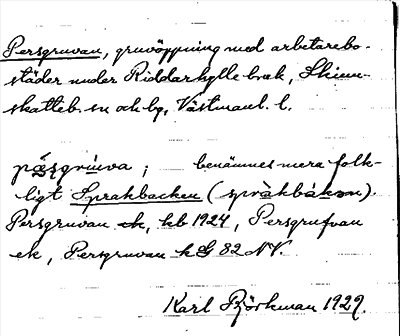 Persgruvan, gruvöppning med arbetarebo-
städer under Riddarhytte bruk, Skinn-
skatteb. sn och bg, Västmanl. l.
pä̀sgrúva; benämnes mera folk-
ligt Sprakbacken (språ̀kbákan).
Persgruvan ek, kb 1924, Persgrufvan
ek, Persgruvan kG 82 NV.
Karl Björkman 1929.